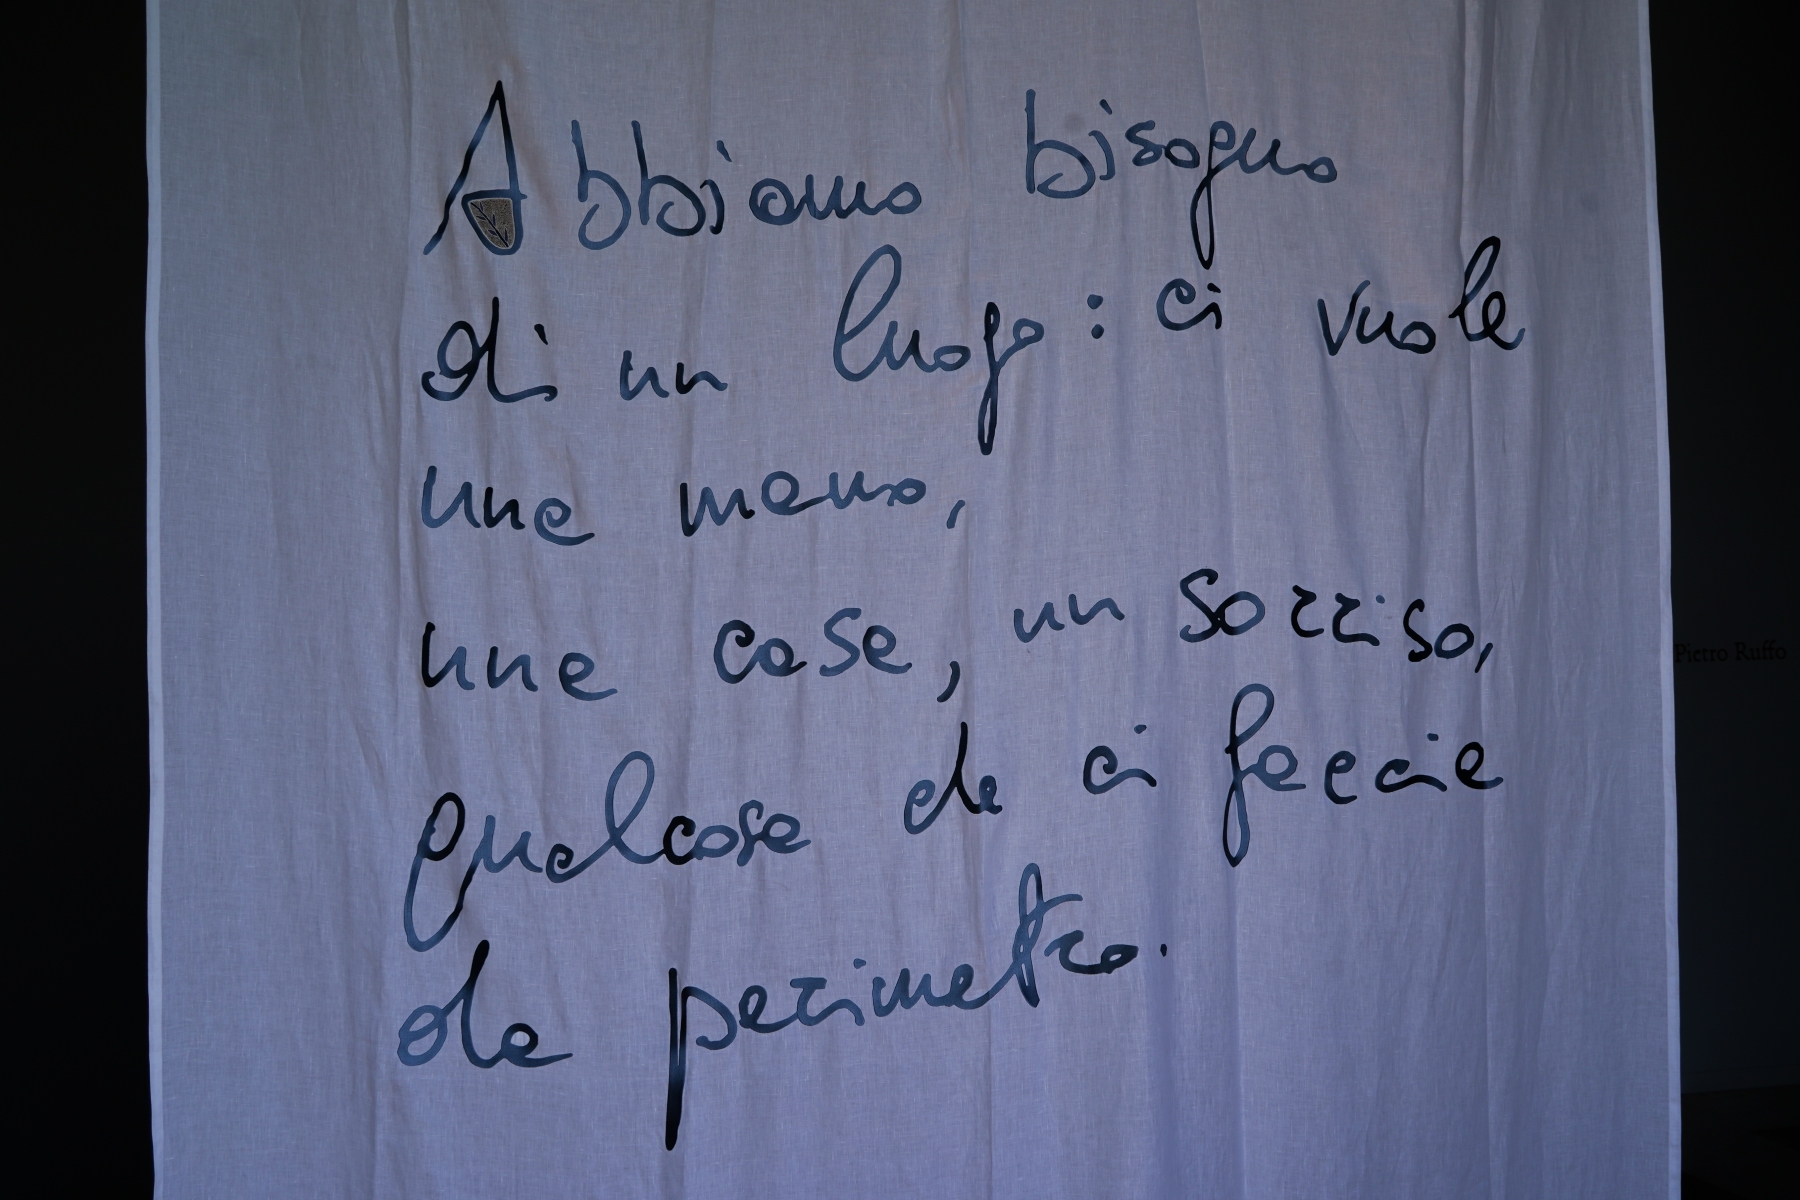 Abbiamo bisogno
di un luogo: ci vuole
una mano,
una casa, un sorriso,
qualcosa che ci faccia
da perimetro.
Pietro Ruffo